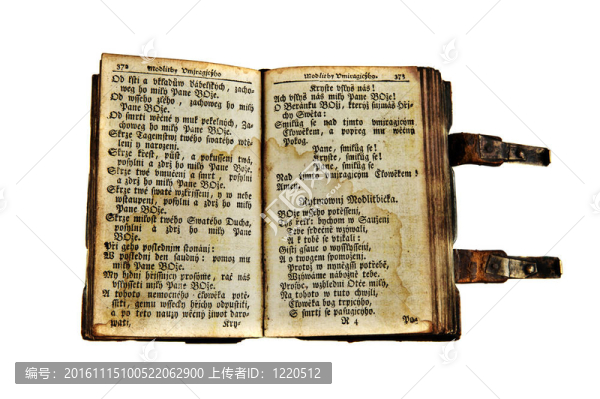 372 Modlitby Vmiragicýho
Od lsti a vkladův Ďábelských, zacho-
weg ho milý Pane BOže.
Od wsseho zlého, zachoweg ho milý
Pane BOže.
Od smrti wěčné y muk pekelných, Za-
choweg ho milý Pane BOže.
Skrze Tagemstwj twého swatého wtě-
lenj y narozenj.
Skrze křest, půst, a pokussenj twá,
posylni a zdrž ho milý Pane Bože.
Skrze twé vmučenj a smrt, posylni
a zdrž ho milý Pane BOže.
Skrze twé swaté wzkřjssenj, y w nebe
wstaupenj, posylni a zdrž ho milý
Pane BOže.
Skrze milost twého Swatého Ducha,
posylni a zdrž ho milý Pane
BOže.
Při geho poslednjm skonánj:
W poslednj den saudný: pomoz mu
milý Pane BOže.
My bjdnj hřjssnjcy prosýme, rač nás
vslysseti milý Pane BOže.
A tohoto nemocného člowěka potě-
ssiti, gemu wssecky hřjchy odpustiti,
a po této nauzy wěčný žiwot daro-
wati,
Kry-
Modlitby Vmiragicýho. 373
Kryste vslyš nás!
Ach vslyš nás milý Pane BOže!
O Beránku BOžj, kterýž snjmáš Hřj-
chy Swěta:
Smilůg se nad tjmto vmiragicým
Člowěkem, a popřeg mu wěčný
Pokog.
Pane, smilůg se!
Kryste, smilůg se!
Pane, smilůg se!
Nad tjmto vmiragicým Člowěkem,
Amen.
Rytmownj Modlitbička.
BOže wsseho potěssenj,
Tys řekl: bychom w Saužení
Tebe srdečně wzýwali,
A k tobě se vtjkali:
Gisti gsauce o wyslyssenj,
A o twogem spomoženj,
Protož w nyněgssj potřebě,
Wzýwáme nábožně tebe.
Prosýc, wzhlédni Otče milý,
Na tohoto w tuto chwjli,
Člowěka bog trpjcýho,
S smrtj se pasugjcýho.
R 4
Po-
编号：20161115100522062900 上传者ID：1220512